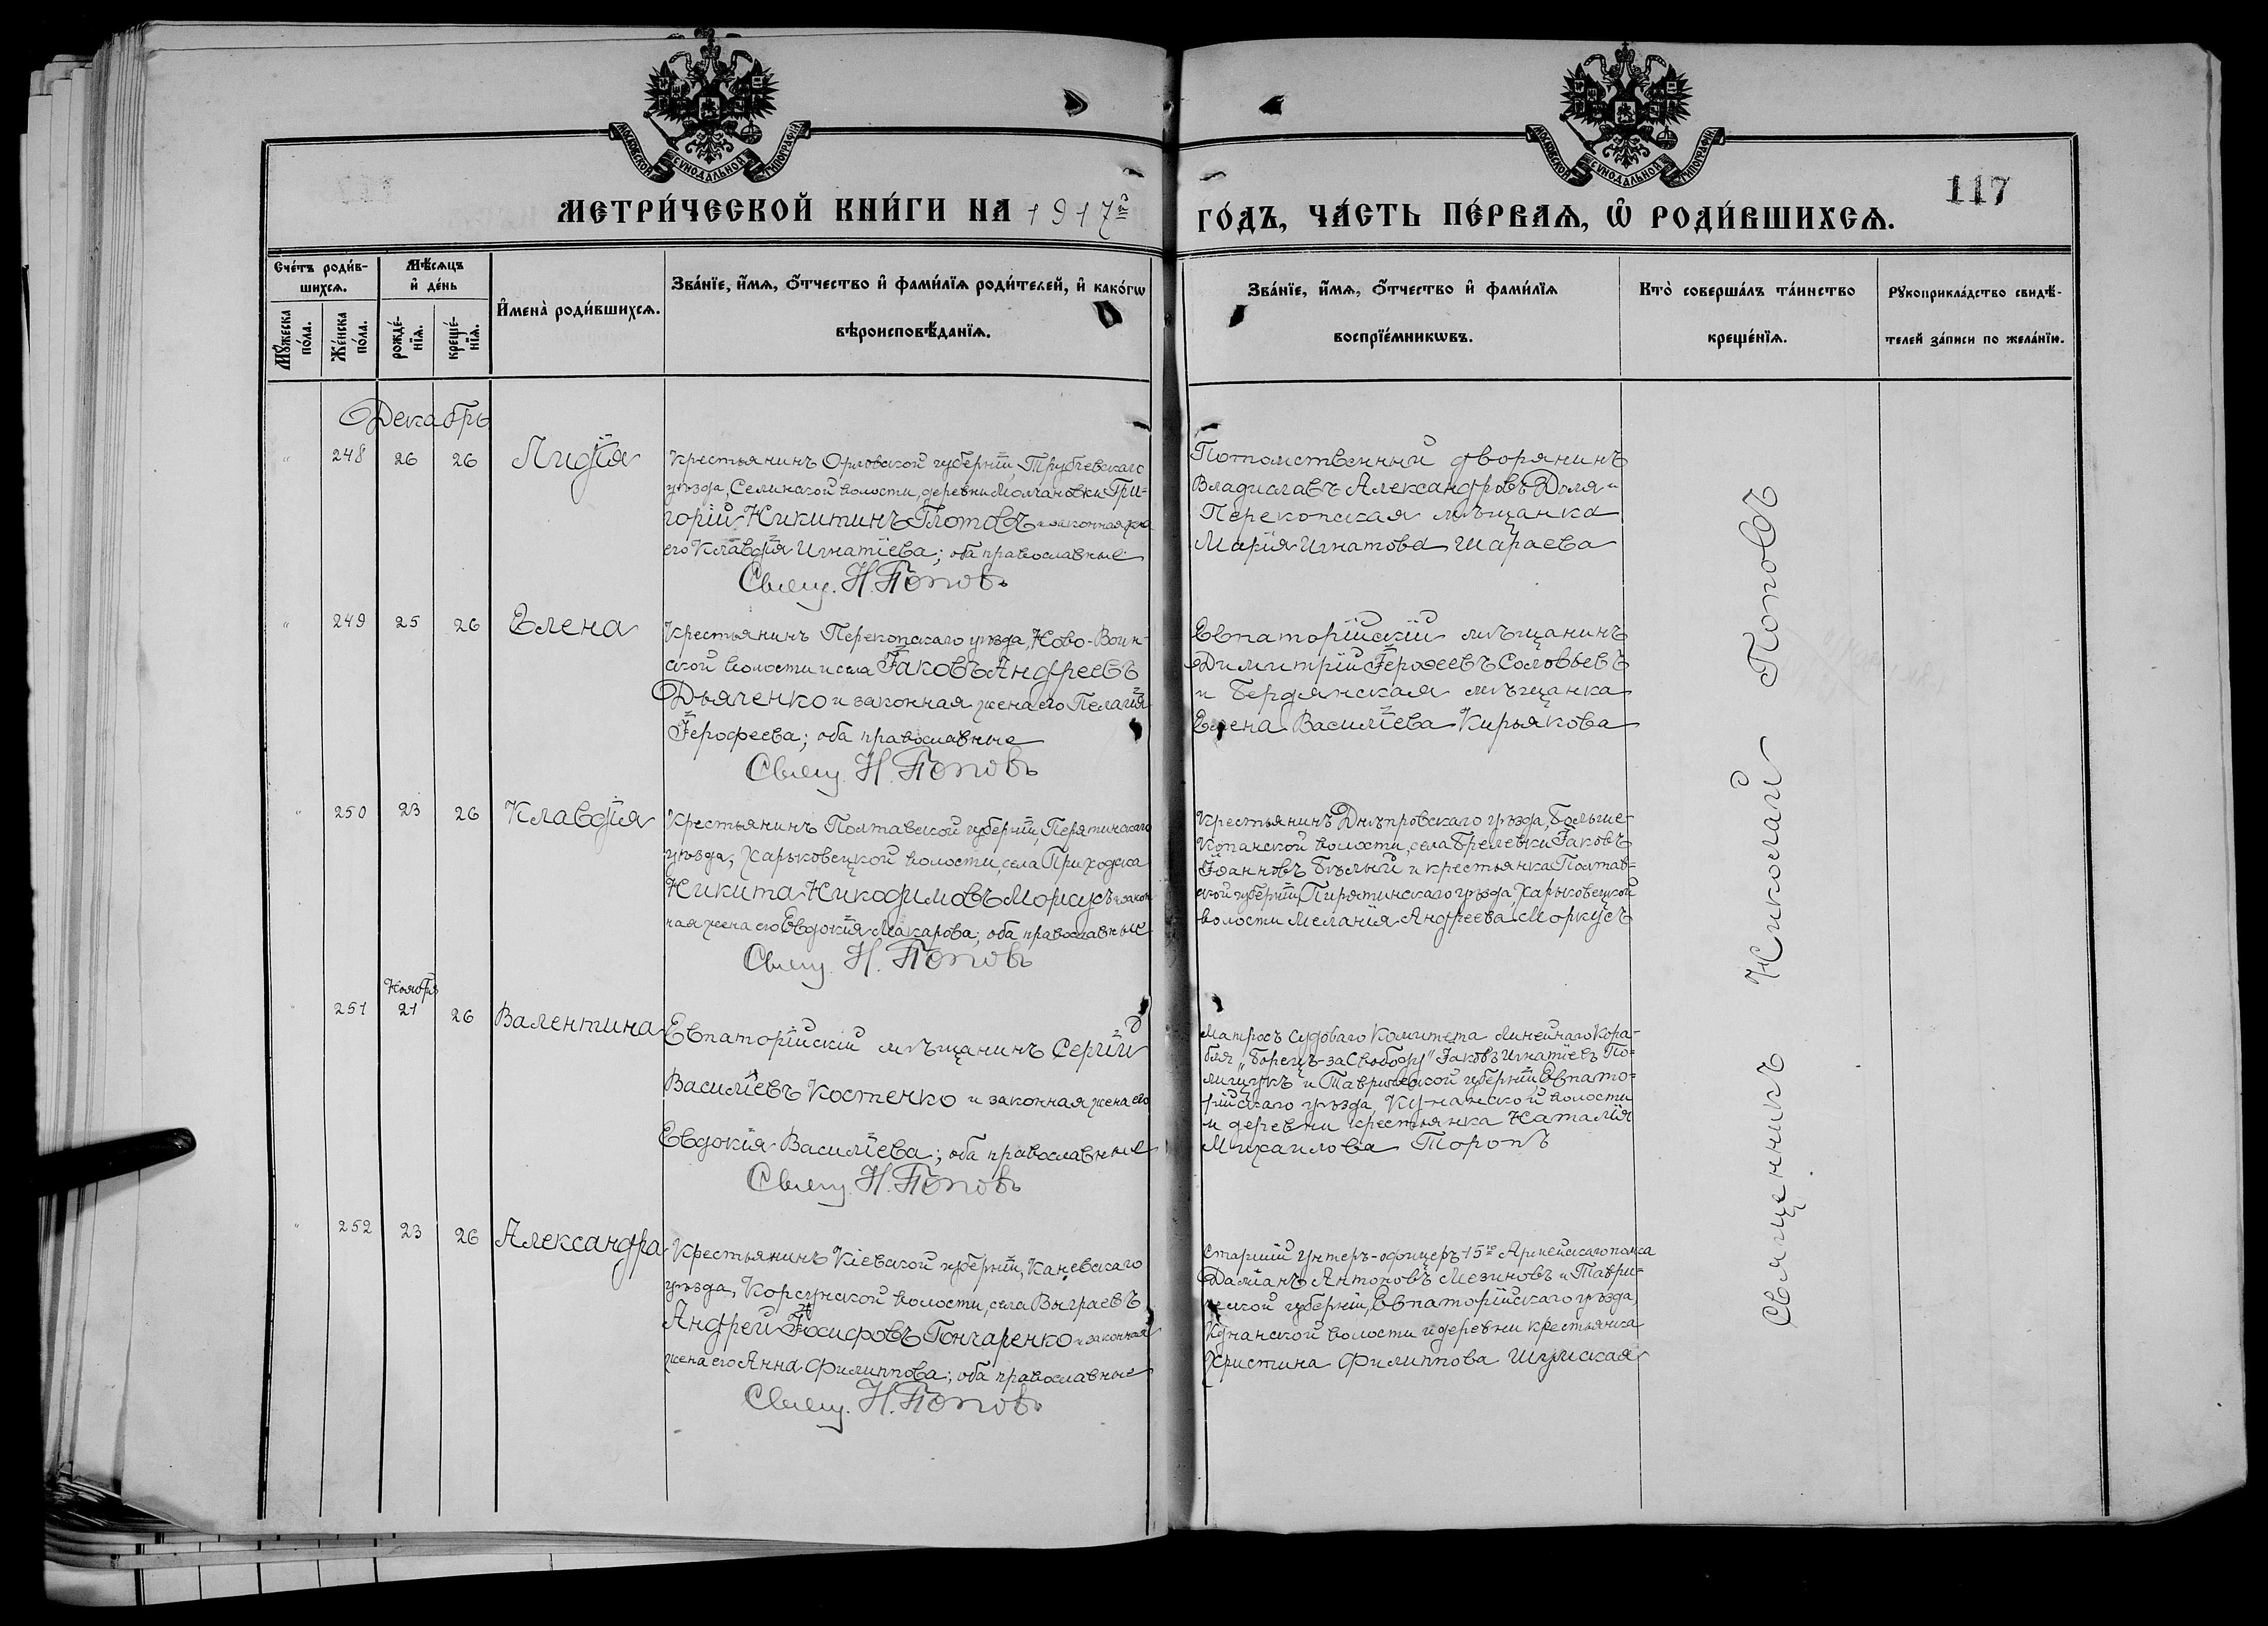 МОСКОВСКОЙ СѴНОДАЛЬНОЙ ТИПОГРАФІИ
МОСКОВСКОЙ СѴНОДАЛЬНОЙ ТИПОГРАФІИ
117
МЕТРИ́ЧЕСКОЙ КНИ́ГИ НА 1917й ГО́ДЪ, ЧА́СТЬ ПЕ́РВАѦ, Ѡ҆ РОДИ́ВШИХСѦ.
Сче́тъ роди́в-
шихсѧ.
Мꙋ́жеска по́ла.
Же́нска по́ла.
Мѣ́сѧцъ и҆ де́нь
рожде́-
нїѧ.
креще́-
нїѧ.
И҆мена̀ роди́вшихсѧ.
Зва́нїе, и҆́мѧ, ѻ҆́тчество и҆ фами́лїѧ роди́телей, и҆ како́гѡ
вѣроисповѣ́данїѧ.
Зва́нїе, и҆́мѧ, ѻ҆́тчество и҆ фами́лїѧ
воспрїе́мникѡвъ.
Кто̀ соверша́лъ та́инство
креще́нїѧ.
Рꙋкоприкла́дство свидѣ́-
телей за́писи по жела́нїю.
Декабрь
" 248 26 26 Лидія
Крестьянинъ Орловской губерніи, Трубчевскаго
уѣзда, Селинской волости, деревни Молчановки Гри-
горій Никитинъ Глотовъ и законная жена
его Клавдія Игнатіева; оба православные
Свящ. Н. Поповъ
Потомственный дворянинъ
Владиславъ Александровъ Доля и
Перекопская мѣщанка
Марія Игнатова Шараева
" 249 25 26 Елена
Крестьянинъ Перекопскаго уѣзда, Ново-Воин-
ской волости и села Іаковъ Андреевъ
Дьяченко и законная жена его Пелагія
Іерофеева; оба православные
Свящ. Н. Поповъ
Евпаторійскій мѣщанинъ
Димитрій Іерофеевъ Соловьевъ
и Бердянская мѣщанка
Елена Василіева Кирьякова
" 250 23 26 Клавдія
Крестьянинъ Полтавской губерніи, Пирятинскаго
уѣзда, Харьковецкой волости, села Приходска
Никита Никодимовъ Моркусъ и закон
ная жена его Евдокія Макарова; оба православные
Свящ. Н. Поповъ
Крестьянинъ Днѣпровскаго уѣзда, Больше-
Копанской волости, села Брелевки Іаковъ
Іоанновъ Бѣлый и крестьянка Полтав-
ской губерніи, Пирятинскаго уѣзда, Харьковецкой
волости Меланія Андреева Моркусъ
" 251 Ноября 21 26 Валентина
Евпаторійскій мѣщанинъ Сергій
Василіевъ Костенко и законная жена его
Евдокія Василіева; оба православные
Свящ. Н. Поповъ
Матросъ Судоваго Комитета Линейнаго Кора-
бля „Борецъ-за Свободу" Іаковъ Игнатіевъ По-
лищукъ и Таврической губерніи, Евпато-
рійскаго уѣзда, Кунанской волости
и деревни крестьянка Наталія
Михаилова Торопъ
" 252 23 26 Александра
Крестьянинъ Кіевской губерніи, Каневскаго
уѣзда, Корсунской волости, села Выграевъ
Андрей Іосифовъ Гончаренко и законная
жена его Анна Филиппова; оба православные
Свящ. Н. Поповъ
Старшій унтеръ-офицеръ 15го Армейскаго полка
Даміанъ Антоновъ Мезиновъ и Таври-
ческой губерніи, Евпаторійскаго уѣзда,
Кунанской волости и деревни крестьянка
Христина Филиппова Шумская
Священникъ Николай Поповъ